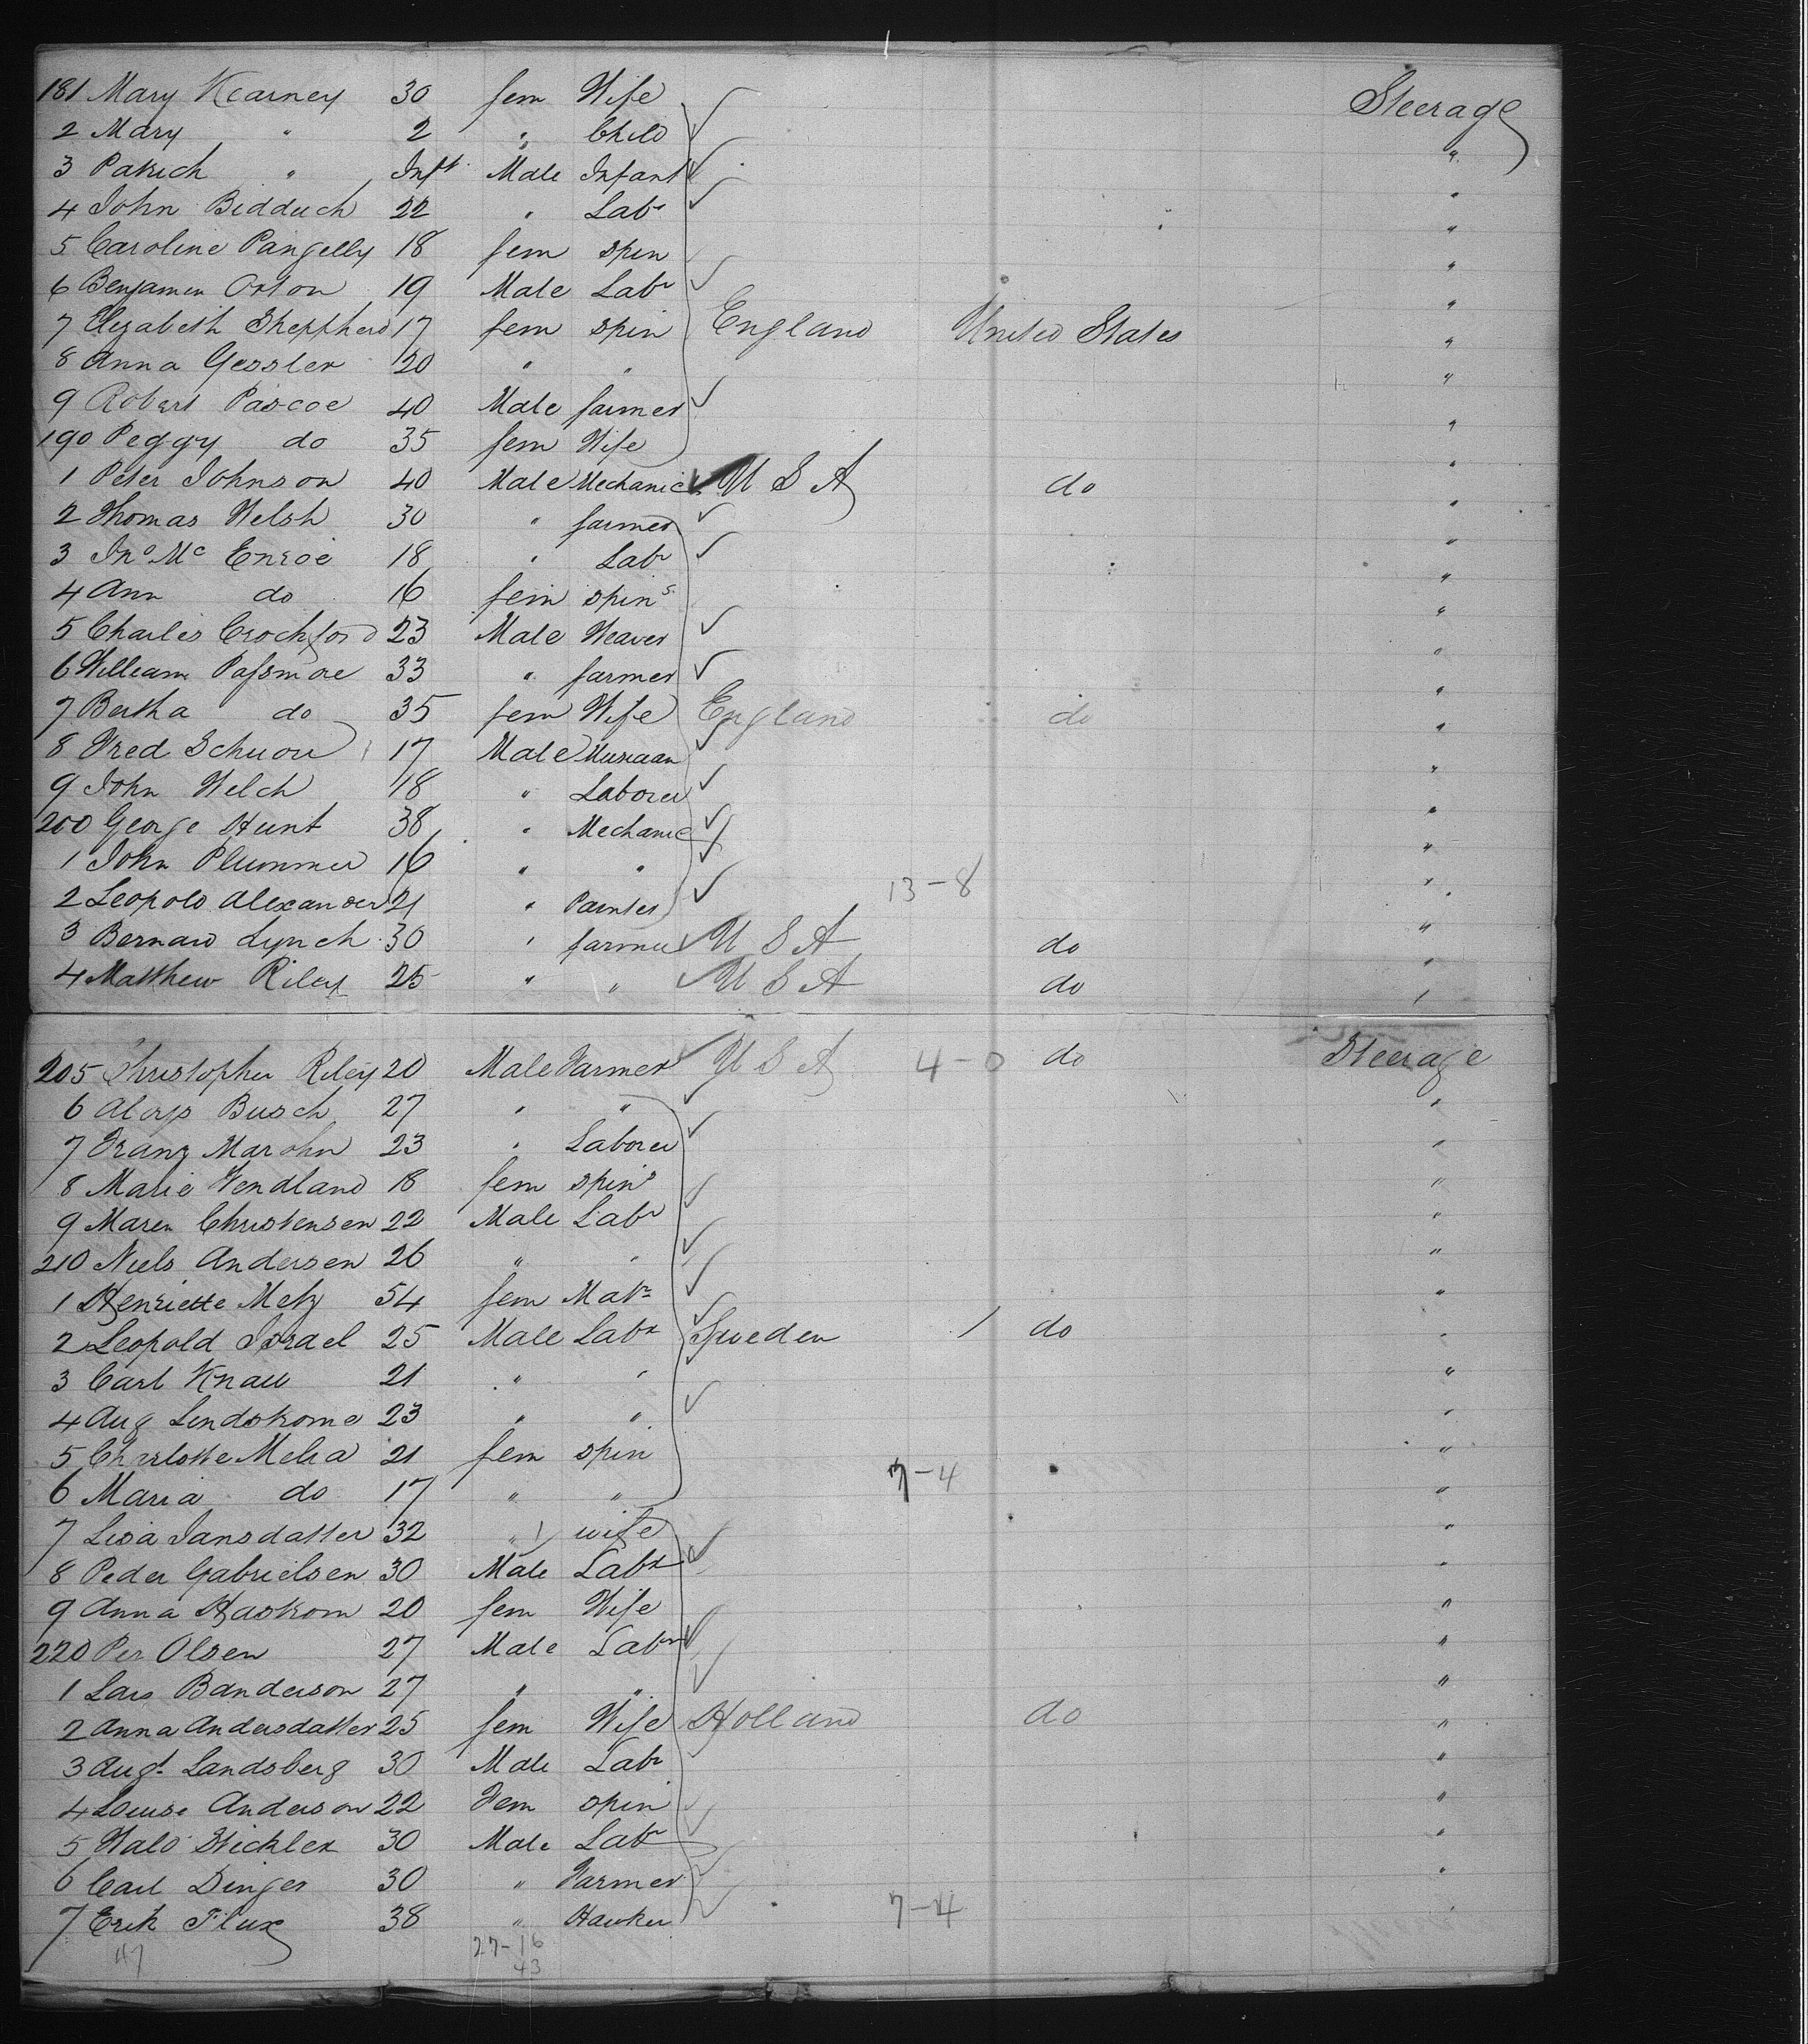 181 Mary Kearney 30 fem Wife Steerage
2 Mary " 2 " Child "
3 Patrick " Inft Male Infant "
4 John Bidduch 22 " Labr "
5 Caroline Pangelly 18 fem spin "
6 Benjamen Orton 19 Male Labr "
7 Elizabeth Sheppherd 17 fem spin England United States "
8 Anna Gessler 20 " " "
9 Robert Pascoe 40 Male farmer "
190 Peggy do 35 fem Wife "
1 Peter Johnson 40 Male Mechanic U S A do "
2 Thomas Welsh 30 " farmer "
3 Jno Mc Enroe 18 " Labr "
4 Ann do 16 fem spins "
5 Charles Crockford 23 Male Weaver "
6 William Passmore 33 " farmer "
7 Bertha do 35 fem Wife England do "
8 Fred 17 Male Musician "
9 John Welch 18 " Laborer "
200 George Hunt 38 " Mechanic "
1 John Plummer 16 " " "
2 Leopold Alexander 21 " Painter 13-8 "
3 Bernard Lynch 30 " farmer U S A do "
4 Matthew Riley 25 " " U S A do "
205 Christopher Riley 20 Male Farmer U S A 4-0 do Steerage
6 Aloys Busch 27 " " "
7 Franz Marohn 23 " Laborer "
8 Marie Wendland 18 fem spins "
9 Maren Christensen 22 Male Labr "
210 Niels Andersen 26 " " "
1 Henriette Metz 54 fem Matr "
2 Leopold Israel 25 Male Labr Sweden / do "
3 Carl Knau 21 " " "
4 Aug Lindstrome 23 " " "
5 Charlotte Melia 21 fem spin "
6 Maria do 17 " " 7-4 "
7 Lisa Jansdatter 32 " wife "
8 Peder Gabrielsen 30 Male Labr "
9 Anna Hastrom 20 fem Wife "
220 Per Olsen 27 Male Labr "
1 Lars Banderson 27 " " "
2 Anna Andersdatter 25 fem Wife Holland do "
3 Augt Landsberg 30 Male Labr "
4 Louise Anderson 22 Fem spin "
5 30 Male Labr "
6 Carl Dinges 30 " Farmer "
7 Erik Flux 38 " Hawker 7-4 "
47 27-16
43